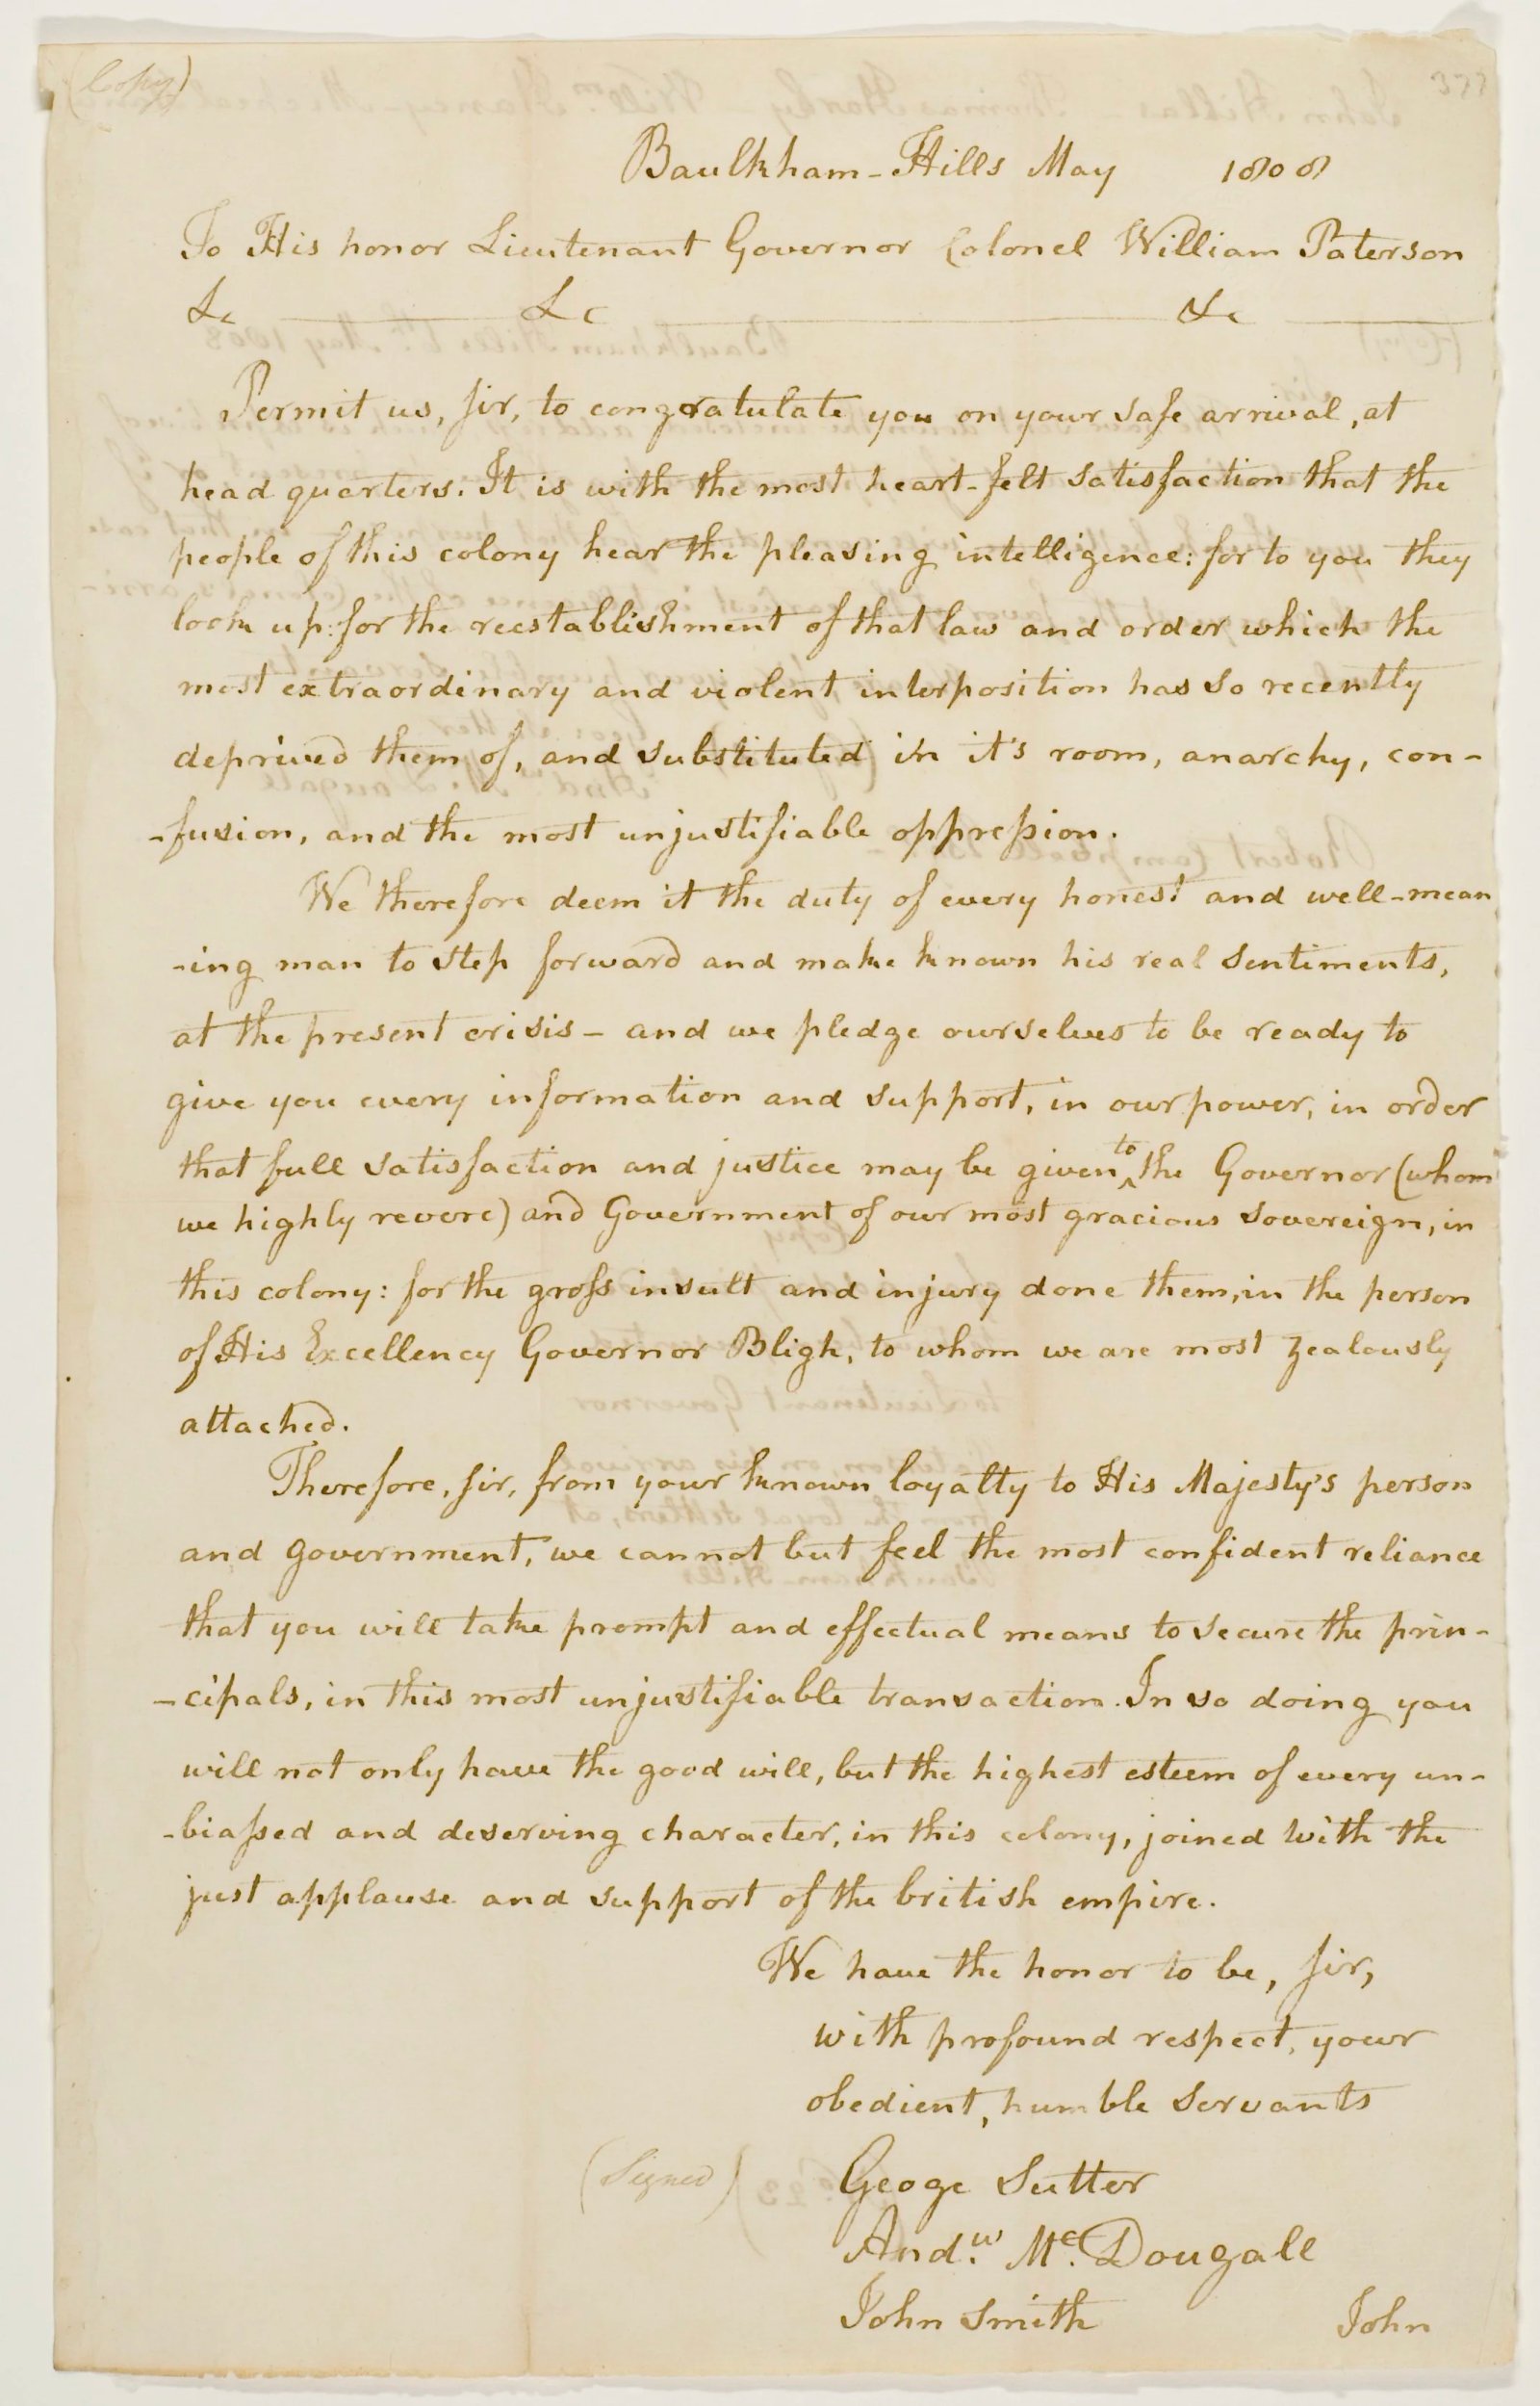 (Copy)
377
Baulkham-Hills May 1808
To His honor Lieutenant Governor Colonel William Paterson
&c &c &c
Permit us, Sir, to congratulate you on your safe arrival, at
head quarters. It is with the most heart-felt satisfaction that the
people of this colony hear the pleasing intelligence: for to you they
look up: for the reestablishment of that law and order which the
most extraordinary and violent interposition has so recently
deprived them of, and substituted in it's room, anarchy, con-
-fusion, and the most unjustifiable oppreſsion.
We therefore deem it the duty of every honest and well-mean
-ing man to step forward and make known his real sentiments,
at the present crisis - and we pledge ourselves to be ready to
give you every information and support, in our power, in order
that full satisfaction and justice may be given to the Governor (whom
we highly revere) and Government of our most gracious sovereign, in
this colony: for the groſs insult and injury done them, in the person
of His Excellency Governor Bligh, to whom we are most zealously
attached.
Therefore, Sir, from your known loyalty to His Majesty's person
and government, we cannot but feel the most confident reliance
that you will take prompt and effectual means to secure the prin-
-cipals, in this most unjustifiable transaction. In so doing you
will not only have the good will, but the highest esteem of every un-
-biaſsed and deserving character, in this colony, joined with the
just applause and support of the british empire.
We have the honor to be, Sir,
with profound respect, your
obedient, humble servants
(Signed) Geoge Sutter
Andw. Mc. Dougall
John Smith John